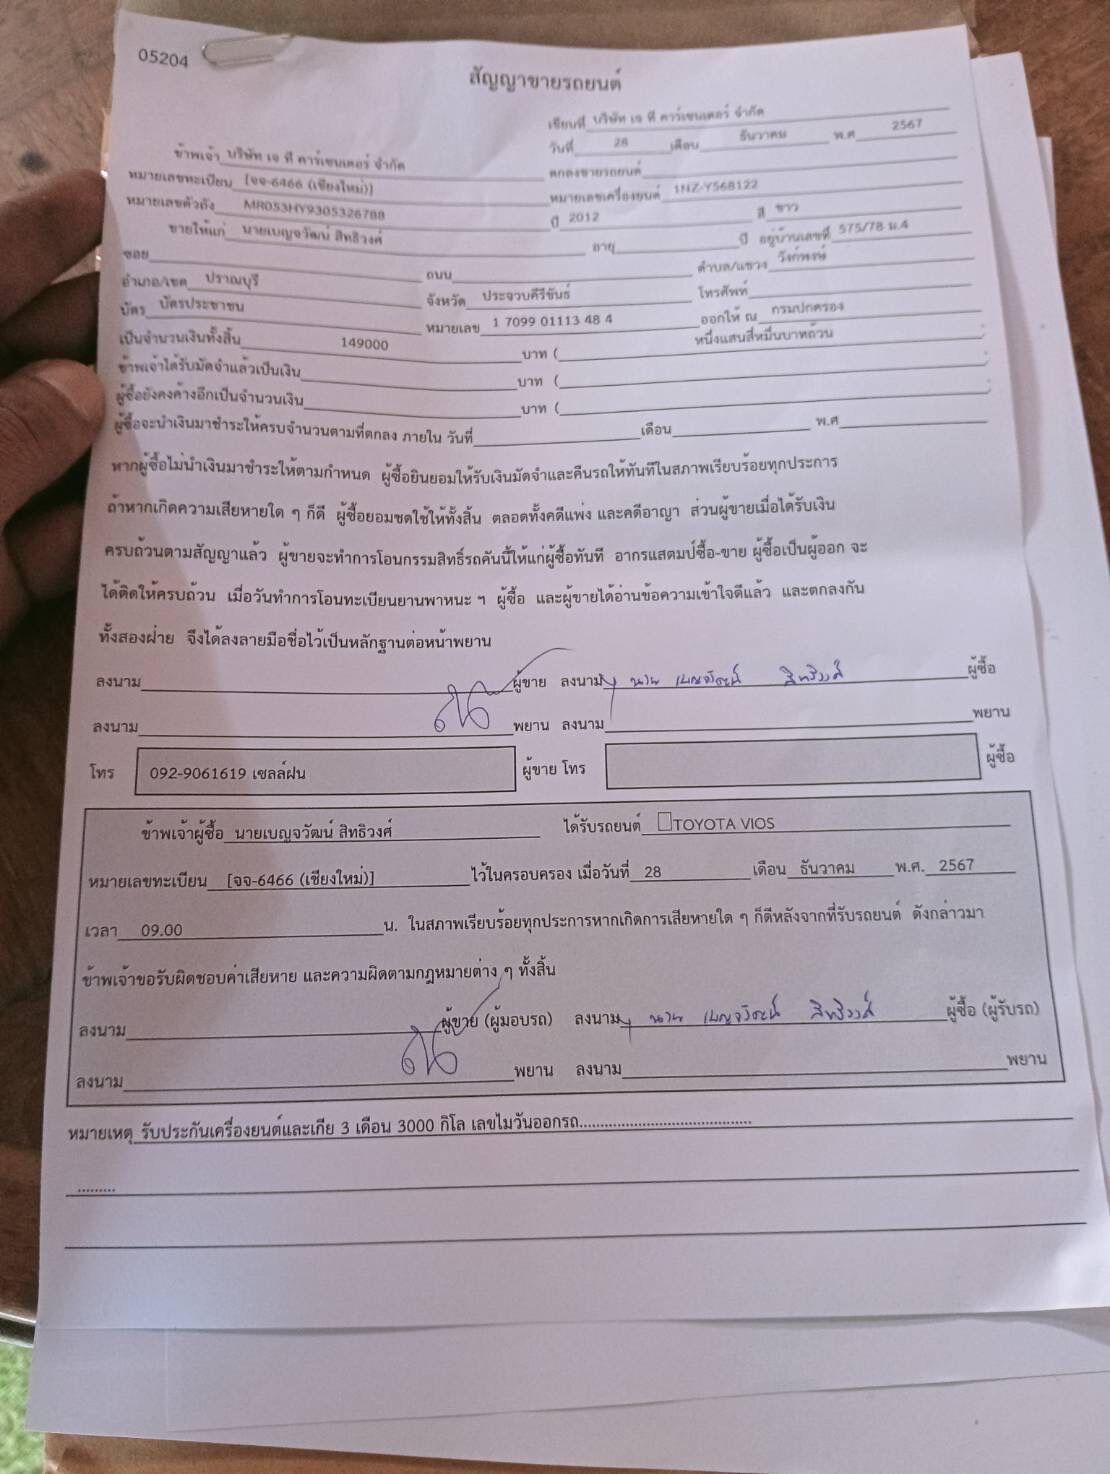 05204
สัญญาขายรถยนต์
เขียนที่ บริษัท เจ ที คาร์เซนเตอร์ จำกัด
วันที่ 28 เดือน ธันวาคม พ.ศ 2567
ข้าพเจ้า บริษัท เจ ที คาร์เซนเตอร์ จำกัด ตกลงขายรถยนต์
หมายเลขทะเบียน [จจ-6466 (เชียงใหม่)] หมายเลขเครื่องยนต์ 1NZ-Y568122
หมายเลขตัวถัง MR053HY9305326788 ปี 2012 สี ขาว
ขายให้แก่ นายเบญจวัฒน์ สิทธิวงศ์ อายุ ปี อยู่บ้านเลขที่ 575/78 ม.4
ซอย ถนน ตำบล/แขวง วังก์พงษ์
อำเภอ/เขต ปราณบุรี จังหวัด ประจวบคีรีขันธ์ โทรศัพท์
บัตร บัตรประชาชน หมายเลข 1 7099 01113 48 4 ออกให้ ณ กรมปกครอง
เป็นจำนวนเงินทั้งสิ้น 149000 บาท ( หนึ่งแสนสี่หมื่นบาทถ้วน )
ข้าพเจ้าได้รับมัดจำแล้วเป็นเงิน บาท ( )
ผู้ซื้อยังคงค้างอีกเป็นจำนวนเงิน บาท ( )
ผู้ซื้อจะนำเงินมาชำระให้ครบจำนวนตามที่ตกลง ภายใน วันที่ เดือน พ.ศ
หากผู้ซื้อไม่นำเงินมาชำระให้ตามกำหนด ผู้ซื้อยินยอมให้รับเงินมัดจำและคืนรถให้ทันทีในสภาพเรียบร้อยทุกประการ
ถ้าหากเกิดความเสียหายใด ๆ ก็ดี ผู้ซื้อยอมชดใช้ให้ทั้งสิ้น ตลอดทั้งคดีแพ่ง และคดีอาญา ส่วนผู้ขายเมื่อได้รับเงิน
ครบถ้วนตามสัญญาแล้ว ผู้ขายจะทำการโอนกรรมสิทธิ์รถคันนี้ให้แก่ผู้ซื้อทันที อากรแสตมป์ซื้อ-ขาย ผู้ซื้อเป็นผู้ออก จะ
ได้ติดให้ครบถ้วน เมื่อวันทำการโอนทะเบียนยานพาหนะ ฯ ผู้ซื้อ และผู้ขายได้อ่านข้อความเข้าใจดีแล้ว และตกลงกัน
ทั้งสองฝ่าย จึงได้ลงลายมือชื่อไว้เป็นหลักฐานต่อหน้าพยาน
ลงนาม ผู้ขาย ลงนาม นาย เบญจวัฒน์ สิทธิวงศ์ ผู้ซื้อ
ลงนาม พยาน ลงนาม พยาน
โทร 092-9061619 เซลล์ฝน ผู้ขาย โทร ผู้ซื้อ
ข้าพเจ้าผู้ซื้อ นายเบญจวัฒน์ สิทธิวงศ์ ได้รับรถยนต์ TOYOTA VIOS
หมายเลขทะเบียน [จจ-6466 (เชียงใหม่)] ไว้ในครอบครอง เมื่อวันที่ 28 เดือน ธันวาคม พ.ศ. 2567
เวลา 09.00 น. ในสภาพเรียบร้อยทุกประการหากเกิดการเสียหายใด ๆ ก็ดีหลังจากที่รับรถยนต์ ดังกล่าวมา
ข้าพเจ้าขอรับผิดชอบค่าเสียหาย และความผิดตามกฎหมายต่าง ๆ ทั้งสิ้น
ลงนาม ผู้ขาย (ผู้มอบรถ) ลงนาม นาย เบญจวัฒน์ สิทธิวงศ์ ผู้ซื้อ (ผู้รับรถ)
ลงนาม พยาน ลงนาม พยาน
หมายเหตุ รับประกันเครื่องยนต์และเกีย 3 เดือน 3000 กิโล เลขไมวันออกรถ..........................................
.........